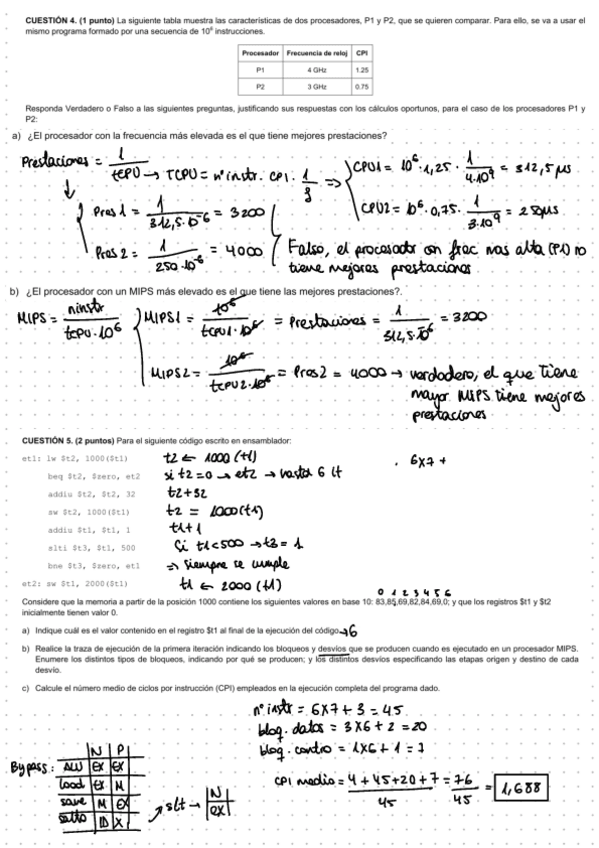 CUESTIÓN 4. (1 punto) La siguiente tabla muestra las características de dos procesadores, P1 y P2, que se quieren comparar. Para ello, se va a usar el
mismo programa formado por una secuencia de 10⁶ instrucciones.
Procesador Frecuencia de reloj CPI
P1 4 GHz 1.25
P2 3 GHz 0.75
Responda Verdadero o Falso a las siguientes preguntas, justificando sus respuestas con los cálculos oportunos, para el caso de los procesadores P1 y
P2:
a) ¿El procesador con la frecuencia más elevada es el que tiene mejores prestaciones?
Prestaciones = 1/tCPU → TCPU = nº instr. CPI · 1/f ⇒ CPU1 = 10⁶ · 1,25 · 1/4·10⁹ = 312,5 μs
CPU2 = 10⁶ · 0,75 · 1/3·10⁹ = 250μs
Pres 1 = 1/312,5·10⁻⁶ = 3200
Pres 2 = 1/250·10⁻⁶ = 4000
Falso, el procesador con frec mas alta (P1) no
tiene mejores prestaciones
b) ¿El procesador con un MIPS más elevado es el que tiene las mejores prestaciones?.
MIPS = ninstr/tCPU·10⁶ MIPS1 = 10⁶/tCPU1·10⁶ = Prestaciones = 1/312,5·10⁻⁶ = 3200
MIPS2 = 10⁶/tCPU2·10⁶ = Pres2 = 4000 → verdadero, el que tiene
mayor MIPS tiene mejores
prestaciones
CUESTIÓN 5. (2 puntos) Para el siguiente código escrito en ensamblador:
et1: lw $t2, 1000($t1) t2 ← 1000 (t1) . 6x7 +
beq $t2, $zero, et2 si t2=0 → et2 → hasta 6 it
addiu $t2, $t2, 32 t2+32
sw $t2, 1000($t1) t2 = 1000(t1)
addiu $t1, $t1, 1 t1+1
slti $t3, $t1, 500 Si t1<500 → t3 = 1
bne $t3, $zero, et1 ⇒ siempre se cumple
et2: sw $t1, 2000($t1) t1 ← 2000 (t1)
0 1 2 3 4 5 6
Considere que la memoria a partir de la posición 1000 contiene los siguientes valores en base 10: 83,85,69,82,84,69,0; y que los registros $t1 y $t2
inicialmente tienen valor 0.
a) Indique cuál es el valor contenido en el registro $t1 al final de la ejecución del código. → 6
b) Realice la traza de ejecución de la primera iteración indicando los bloqueos y desvíos que se producen cuando es ejecutado en un procesador MIPS.
Enumere los distintos tipos de bloqueos, indicando por qué se producen; y los distintos desvíos especificando las etapas origen y destino de cada
desvío.
c) Calcule el número medio de ciclos por instrucción (CPI) empleados en la ejecución completa del programa dado.
nº instr = 6x7 + 3 = 45
bloq. datos = 3x6 + 2 = 20
bloq. contro = 1x6 + 1 = 7
CPI medio = 4 + 45 + 20 + 7/45 = 76/45 = 1,688
N P
Bypass: ALU EX EX
load EX M
save M EX
salto ID X
slt → N
EX